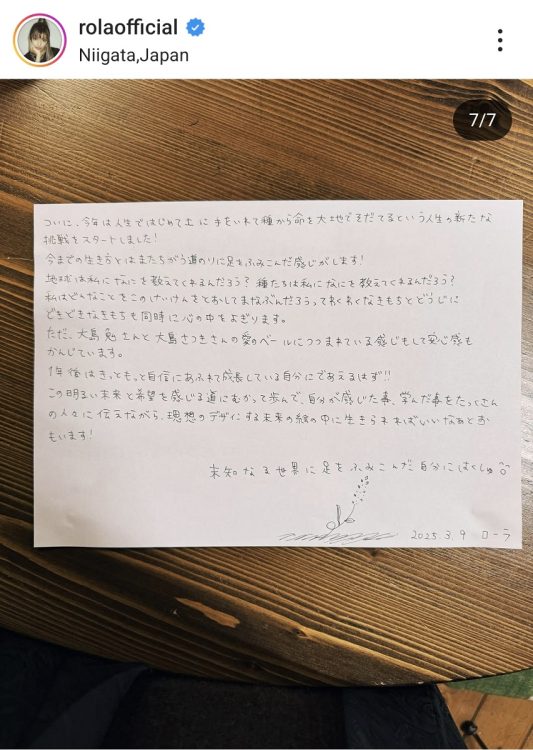 rolaofficial
Niigata,Japan
7/7
ついに、今年は人生ではじめて土に手をいれて種から命を大地でそだてるという人生の新たな
挑戦をスタートしました!
今までの生き方とはまたちがう道のりに足をふみこんだ感じがします!
地球は私になにを教えてくれるんだろう? 種たちは私になにを教えてくれるんだろう?
私はどんなことをこのけいけんをとおしてまなぶんだろうってわくわくなきもちとどうじに
どきどきなきもちも同時に心の中をよぎります。
ただ、大島 勉さんと大島さつきさんの愛のベールにつつまれている感じもして安心感も
かんじています。
1年後はきっともっと自信にあふれて成長している自分にであえるはず!!
この明るい未来と希望を感じる道にむかって歩んで、自分が感じた事、学んだ事をたっくさん
の人々に伝えながら、理想のデザインする未来の絵の中に生きられればいいなぁとお
もいます!
未知なる世界に足をふみこんだ自分にはくしゅ
2025.3.9 ローラ